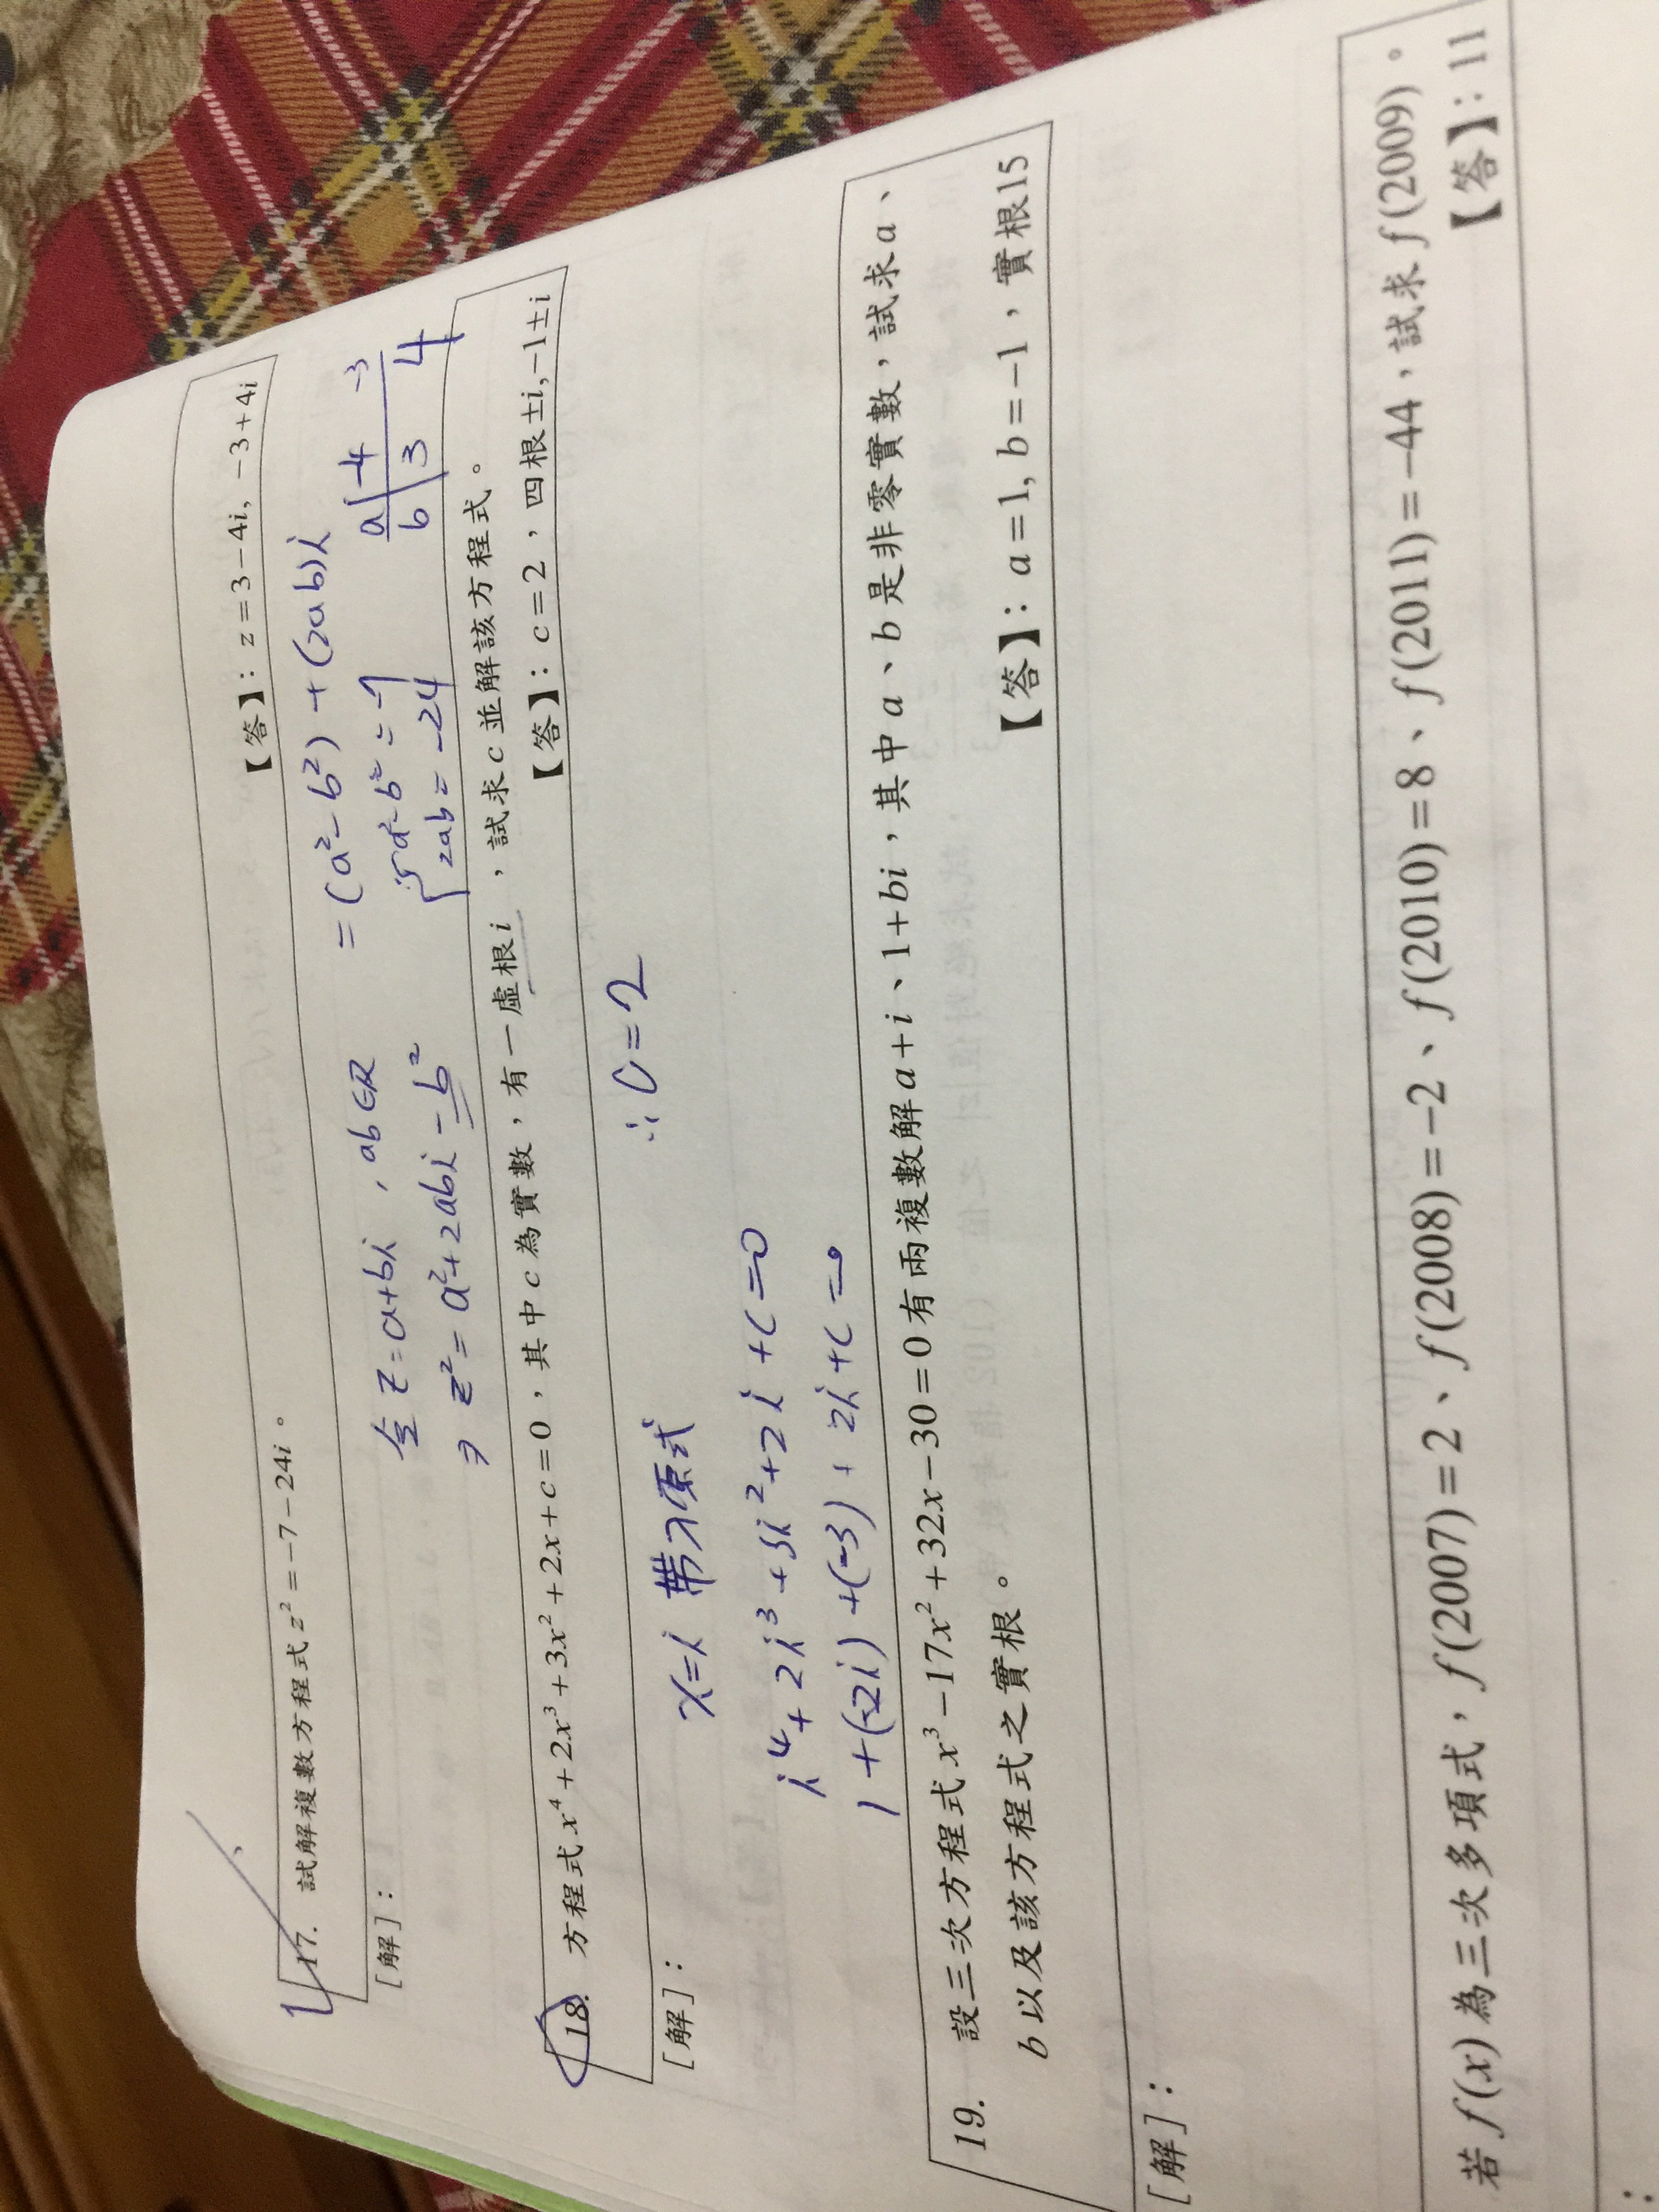 17. 試解複數方程式 z² = -7 - 24i。
【答】: z = 3 - 4i, -3 + 4i
[解]:
令 z = a+bi , ab∈R
= (a² - b²) + (2ab)i
⇒ z² = a² + 2abi - b²
{a² - b² = -7
2ab = -24
a | -4 | -3
b | 3 | 4
18. 方程式 x⁴ + 2x³ + 3x² + 2x + c = 0,其中 c 為實數,有一虛根 i ,試求 c 並解該方程式。
【答】: c = 2,四根 ±i, -1±i
[解]:
x=i 帶入原式
∴ C=2
i⁴ + 2i³ + 3i² + 2i + C = 0
1 + (-2i) + (-3) + 2i + C = 0
19. 設三次方程式 x³ - 17x² + 32x - 30 = 0 有兩複數解 a+i、1+bi,其中 a、b 是非零實數,試求 a、
b 以及該方程式之實根。
【答】: a = 1, b = -1,實根 15
[解]:
若 f(x) 為三次多項式,f(2007) = 2、f(2008) = -2、f(2010) = 8、f(2011) = -44,試求 f(2009)。
【答】: 11